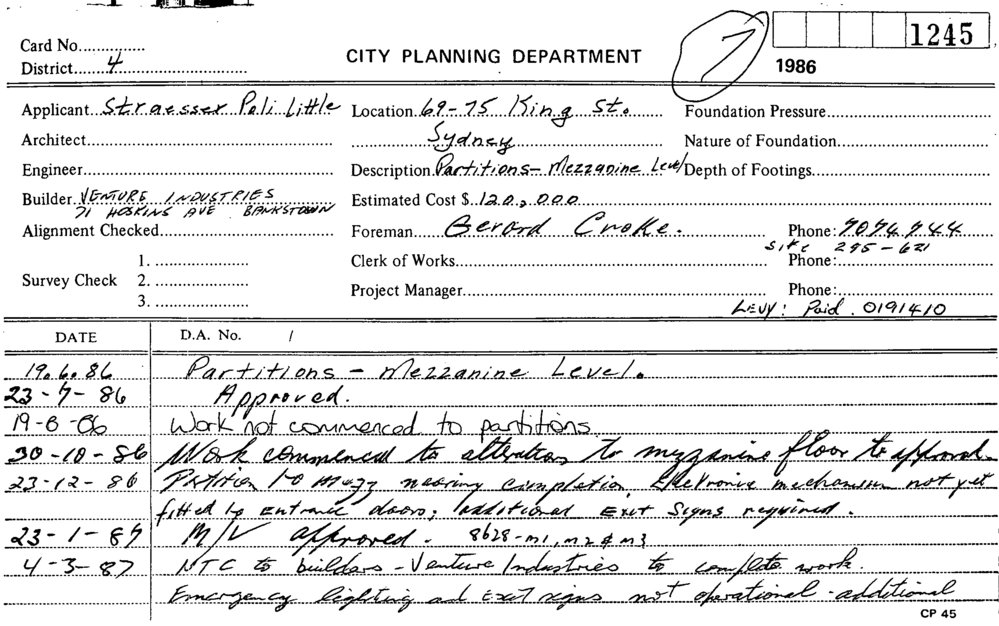 7
1245
Card No.
CITY PLANNING DEPARTMENT
1986
District 4
Applicant Straesser Poli Little Location 69-75 King St. Foundation Pressure
Architect Sydney Nature of Foundation
Engineer Description Partitions - Mezzanine Level Depth of Footings
Builder VENTURE INDUSTRIES Estimated Cost $ 120,000
71 HOSKINS AVE BANKSTOWN
Alignment Checked Foreman Gerard Croke. Phone: 7074744
site 295-621
1. Clerk of Works Phone:
Survey Check 2.
Project Manager Phone:
3.
LEVY: Paid. 0191410
DATE D.A. No. /
19.6.86 Partitions - Mezzanine Level.
23-7-86 Approved.
19-8-86 Work not commenced to partitions.
30-10-86 Work commenced to alterations to mezzanine floor to approval.
23-12-86 Partition to mezz nearing completion, Electronic mechanism not yet
fitted to entrance doors; additional Exit Signs required.
23-1-87 M/V approved. 8628-M1, M2 & M3
4-3-87 NTC to builders - Venture Industries to complete work.
Emergency lighting and Exit signs not operational - additional
CP 45